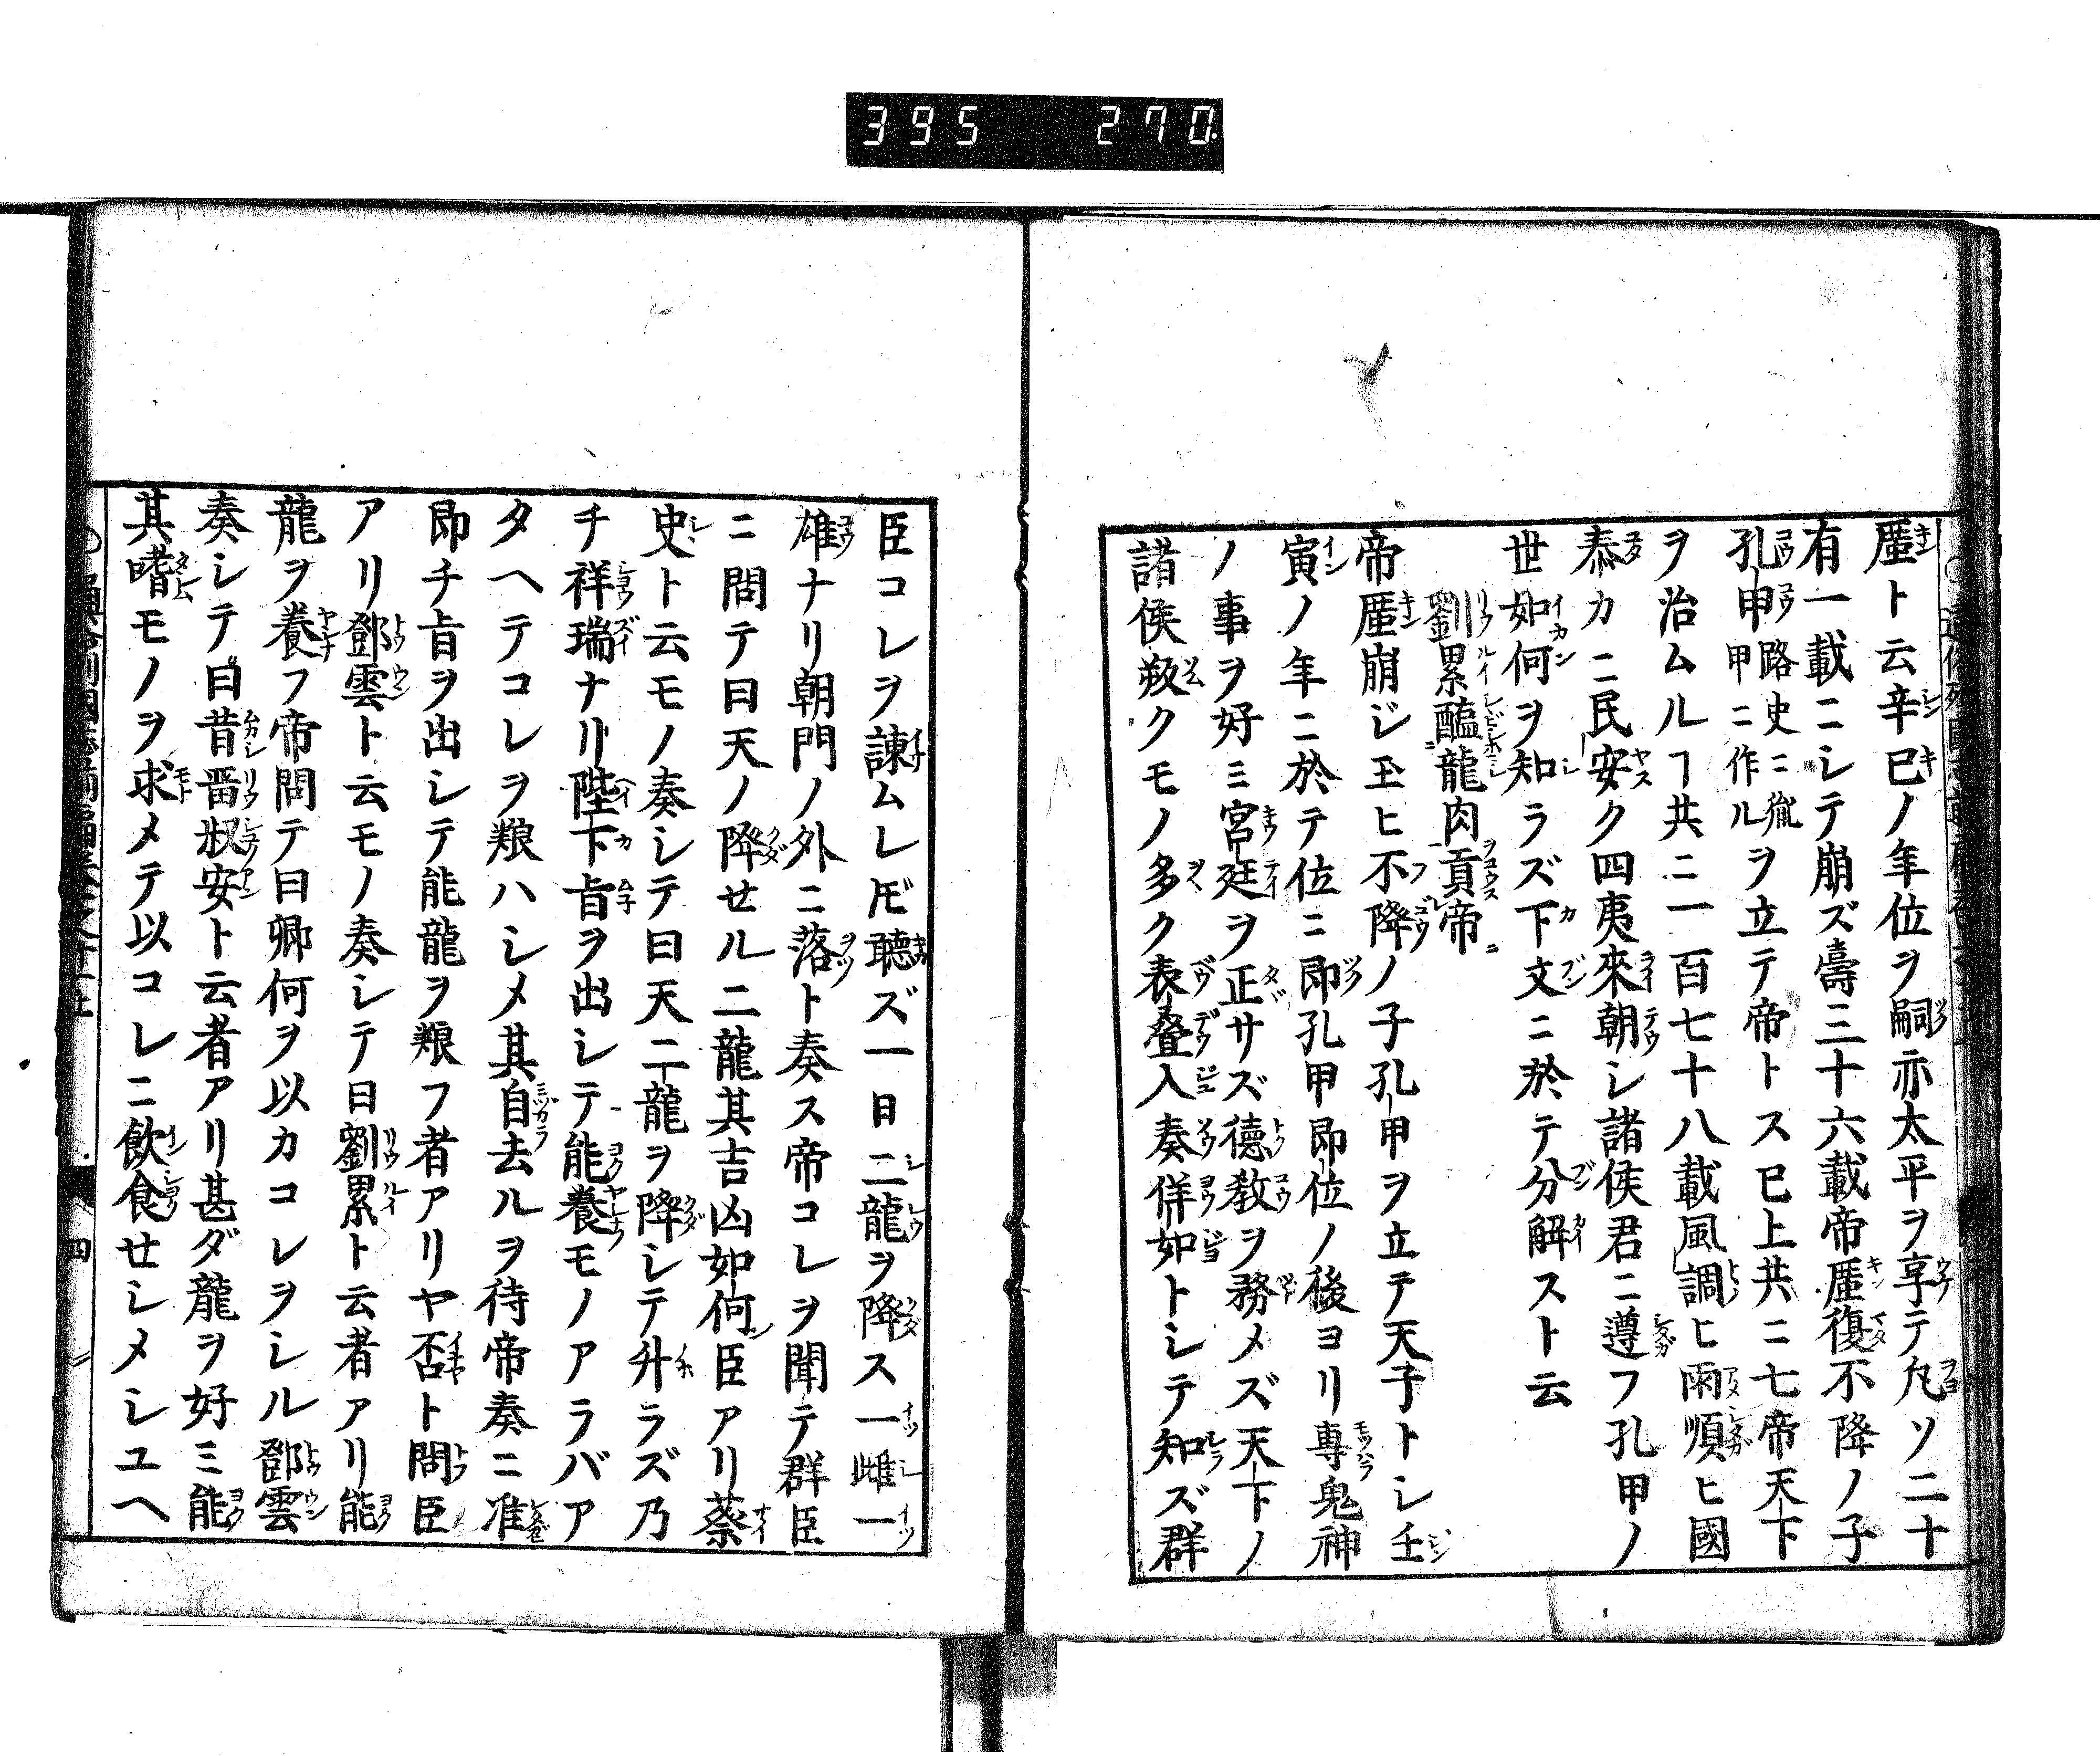 395 270
廑ト云辛巳ノ年位ヲ嗣亦太平ヲ享テ凡ソ二十
有一載ニシテ崩ズ壽三十六載帝廑復不降ノ子
孔甲路史ニ胤甲ニ作ルヲ立テ帝トス已上共ニ七帝天下
ヲ治ムルヿ共ニ一百七十八載風調ヒ雨順ヒ國
泰カニ民安ク四夷來朝シ諸侯君ニ遵フ孔甲ノ
世如何ヲ知ラズ下文ニ於テ分解スト云
劉累醢龍肉貢帝
帝廑崩ジ玉ヒ不降ノ子孔甲ヲ立テ天子トシ壬
寅ノ年ニ於テ位ニ即孔甲即位ノ後ヨリ專鬼神
ノ事ヲ好ミ宮廷ヲ正サズ德敎ヲ務メズ天下ノ
諸侯叛クモノ多ク表疊入奏佯如トシテ知ズ群
臣コレヲ諫ムレ𪜈聽ズ一日二龍ヲ降ス一雌一
雄ナリ朝門ノ外ニ落ト奏ス帝コレヲ聞テ群臣
ニ問テ曰天ノ降セル二龍其吉凶如何臣アリ蔡
史ト云モノ奏シテ曰天二龍ヲ降シテ升ラズ乃
チ祥瑞ナリ陛下旨ヲ出シテ能養モノアラバア
タヘテコレヲ粮ハシメ其自去ルヲ待帝奏ニ准
即チ旨ヲ出シテ能龍ヲ粮フ者アリヤ否ト問臣
アリ鄧雲ト云モノ奏シテ曰劉累ト云者アリ能
龍ヲ養フ帝問テ曰卿何ヲ以カコレヲシル鄧雲
奏シテ曰昔畱叔安ト云者アリ甚ダ龍ヲ好ミ能
其嗜モノヲ求メテ以コレニ飮食セシメシユヘ
四